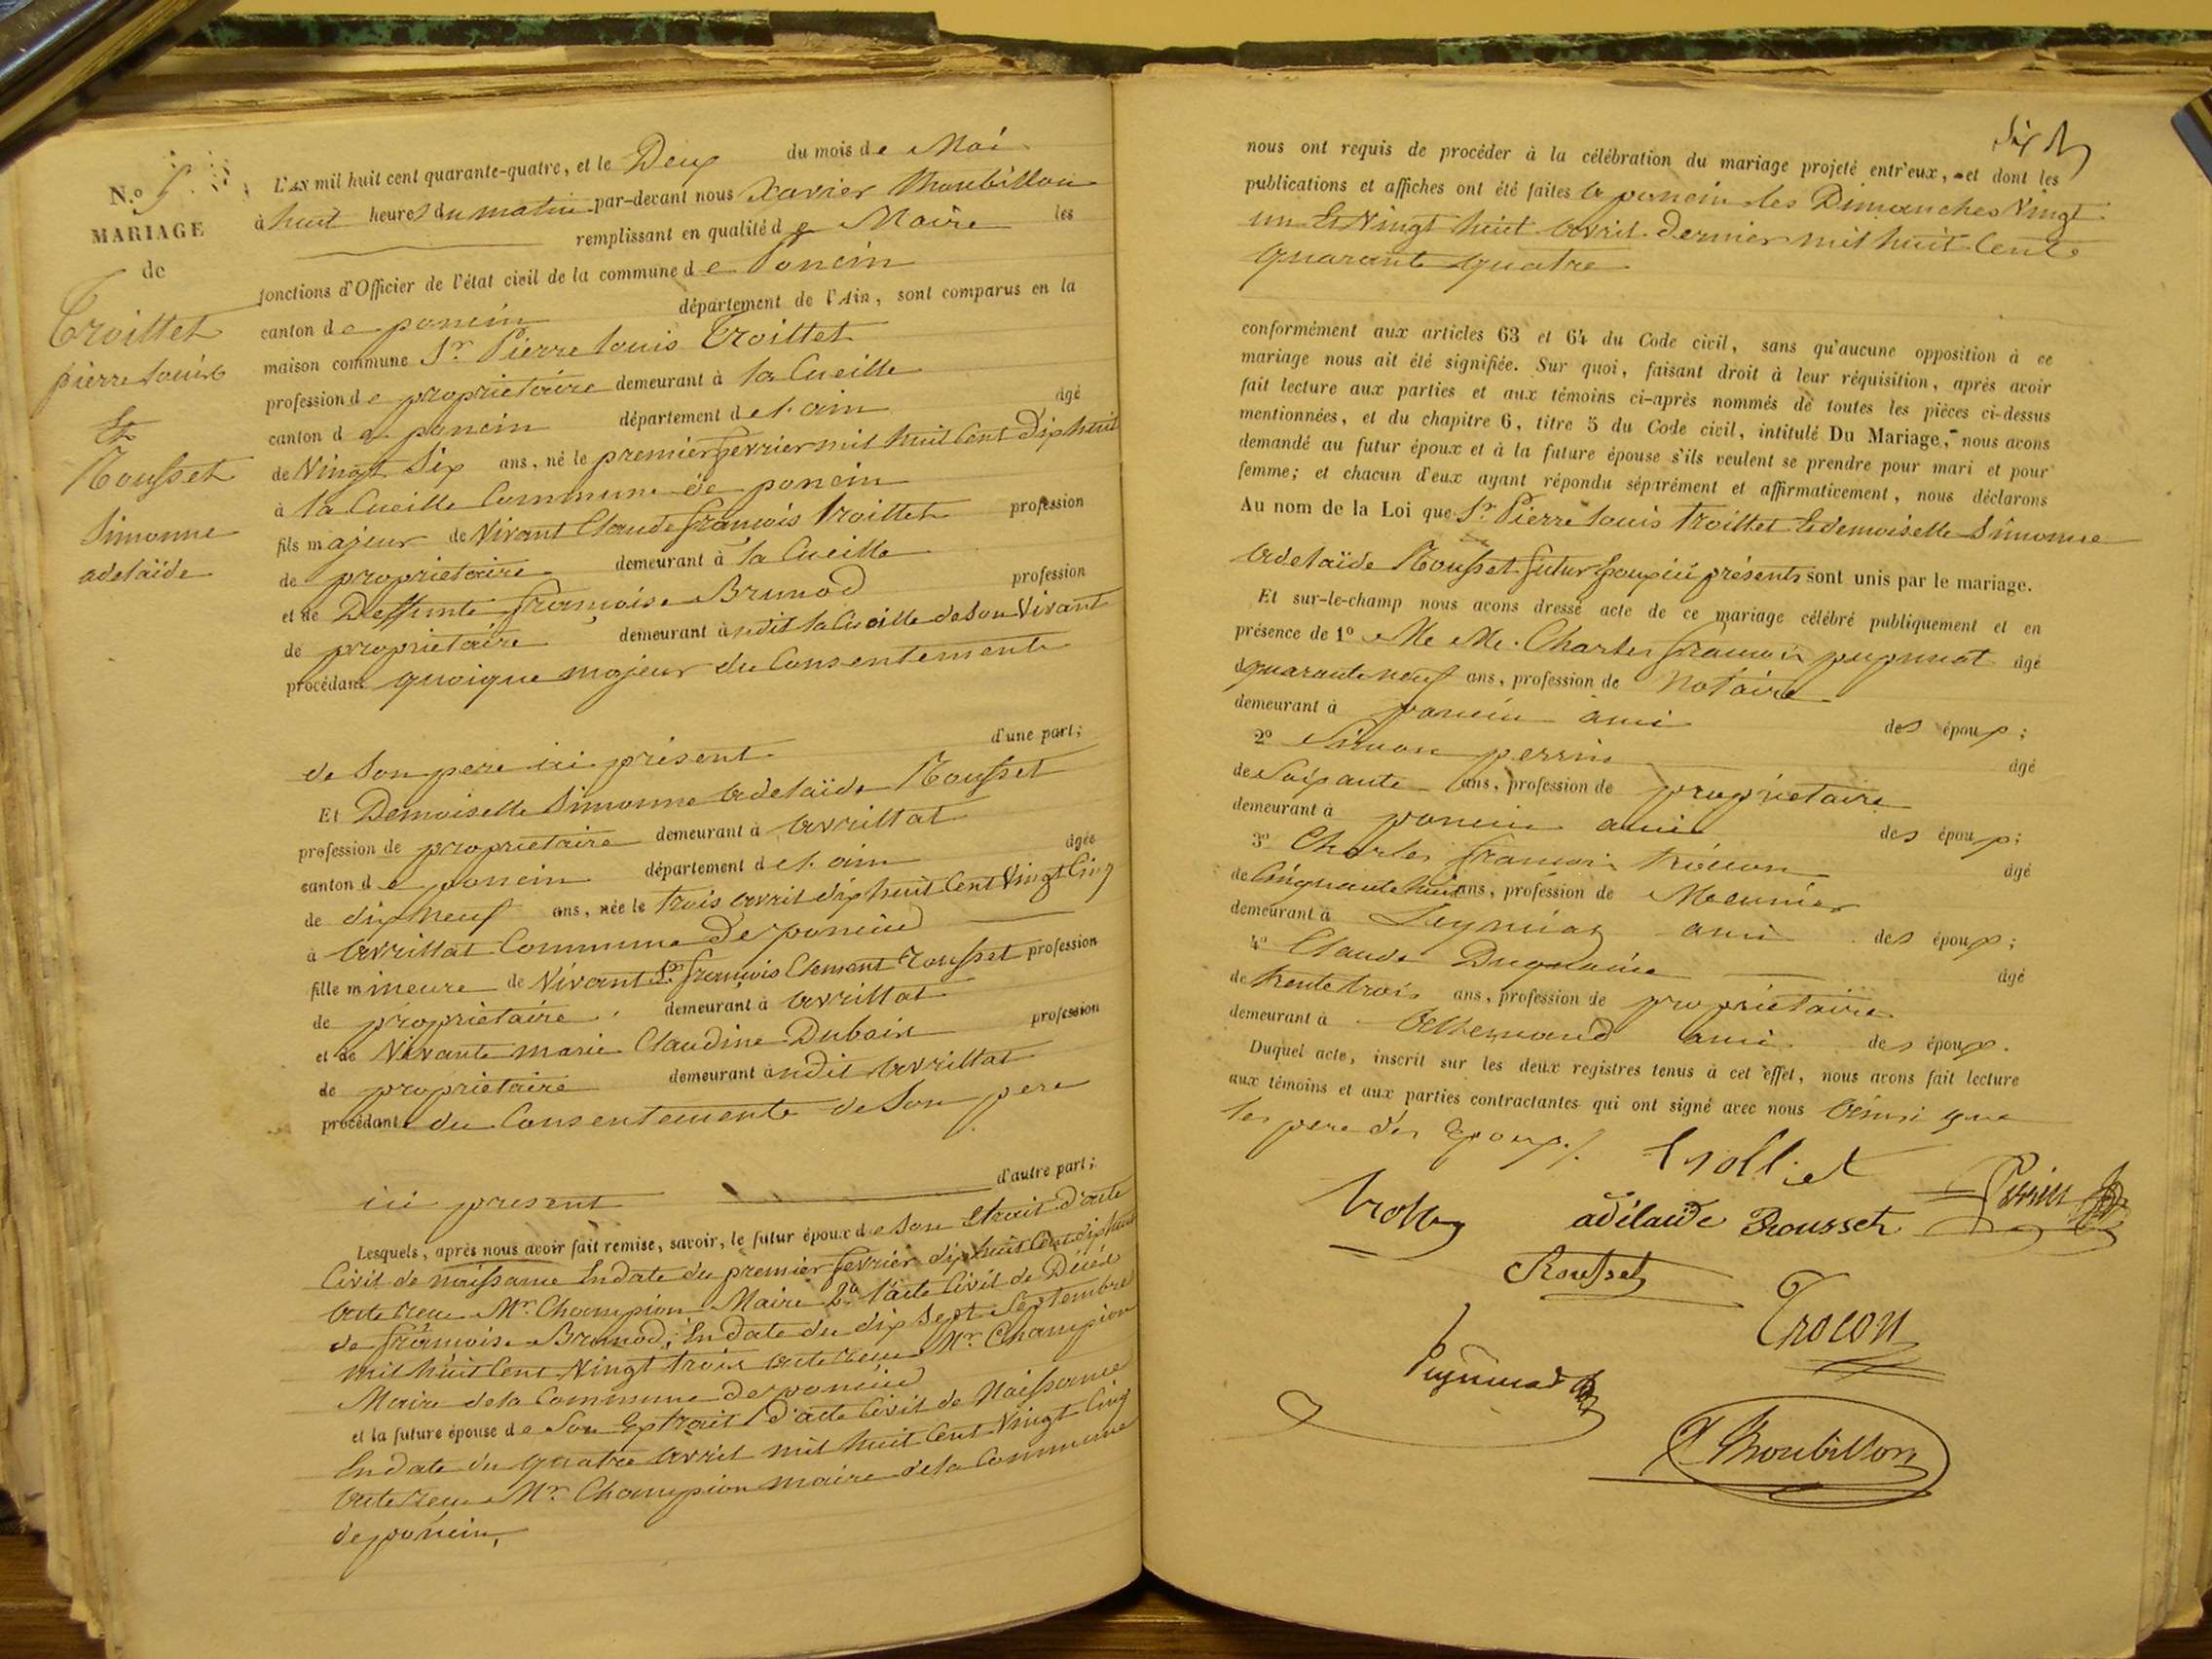 N.o 5
MARIAGE
de
Troillet
pierre Louis
Et
Rousset
Simonne
adelaïde
L'AN mil huit cent quarante-quatre, et le Deux du mois de Mai
à huit heures du matin par-devant nous Xavier Thoubillon
remplissant en qualité de Maire les
fonctions d'Officier de l'état civil de la commune de Poncin
canton de poncin département de l'Ain, sont comparus en la
maison commune Sr. Pierre Louis Troillet
profession de proprietaire demeurant à la Cueille
canton de poncin département de l'ain âgé
de Vingt Six ans, né le premier fevrier mil huit Cent Dix huit
à la Cueille Commune de poncin
fils majeur de Vivant Claude françois Troillet profession
de proprietaire demeurant à la Cueille
et de Deffunte françoise Brunod profession
de propriétaire demeurant àudit la Cueille de Son Vivant
procédant quoique majeur du Consentement
de Son pere ici présent d'une part;
Et Demoiselle Simonne Adelaïde Rousset
profession de proprietaire demeurant à Avrillat
canton de poncin département de l'ain âgée
de dix neuf ans, née le trois Avril dix huit Cent Vingt Cinq
à Avrillat Commune De poncin
fille mineure de Vivant Sr. françois Clement Rousset profession
de propriétaire demeurant à Avrillat
et de Vivante marie Claudine Dubois profession
de propriétaire demeurant àudit Avrillat
procédant du Consentement de Son pere
ici present d'autre part;
Lesquels, après nous avoir fait remise, savoir, le futur époux de Son Etrait d'acte
Civil de naissance En date du premier fevrier dix huit Cent dix huit
Acte reçu Mr. Champion Maire 2o l'acte Civil de Décés
de françoise Brunod, En date du dix Sept Septembre
mil huit Cent Vingt trois acte reçu Mr. Champion
Maire de la Commune De poncin
et la future épouse de Son Extrait d'acte Civil de Naissance
En date du quatre avril mil huit Cent Vingt Cinq
Acte reçu Mr. Champion maire de la Commune
de poncin,
Six
nous ont requis de procéder à la célébration du mariage projeté entr'eux, et dont les
publications et affiches ont été faites à poncin les Dimanches Vingt
un Et Vingt huit Avril Dernier mil huit Cent
quarante quatre
conformément aux articles 63 et 64 du Code civil, sans qu'aucune opposition à ce
mariage nous ait été signifiée. Sur quoi, faisant droit à leur réquisition, après avoir
fait lecture aux parties et aux témoins ci-après nommés de toutes les pièces ci-dessus
mentionnées, et du chapitre 6, titre 5 du Code civil, intitulé Du Mariage, nous avons
demandé au futur époux et à la future épouse s'ils veulent se prendre pour mari et pour
femme; et chacun d'eux ayant répondu séparément et affirmativement, nous déclarons
Au nom de la Loi que Sr. Pierre Louis Troillet Et demoiselle Simonne
Adelaïde Rousset futur Epoux ici présents sont unis par le mariage.
Et sur-le-champ nous avons dressé acte de ce mariage célébré publiquement et en
présence de 1o Me Charles françois pupunat âgé
quarante neuf ans, profession de Notaire
demeurant à poncin ami des époux;
2o Simon perrin âgé
de Soixante ans, profession de propriétaire
demeurant à poncin ami des époux;
3o Charles françois trocon âgé
de Cinquante huit ans, profession de Meunier
demeurant à Leymiat ami des époux;
4o Claude âgé
de trente trois ans, profession de propriétaire
demeurant à Allemand ami des époux.
Duquel acte, inscrit sur les deux registres tenus à cet effet, nous avons fait lecture
aux témoins et aux parties contractantes qui ont signé avec nous Ainsi que
les pere des Epoux./.
trolliet
Perrin
adélaide Rousset
Rousset
Trocon
Thoubillon